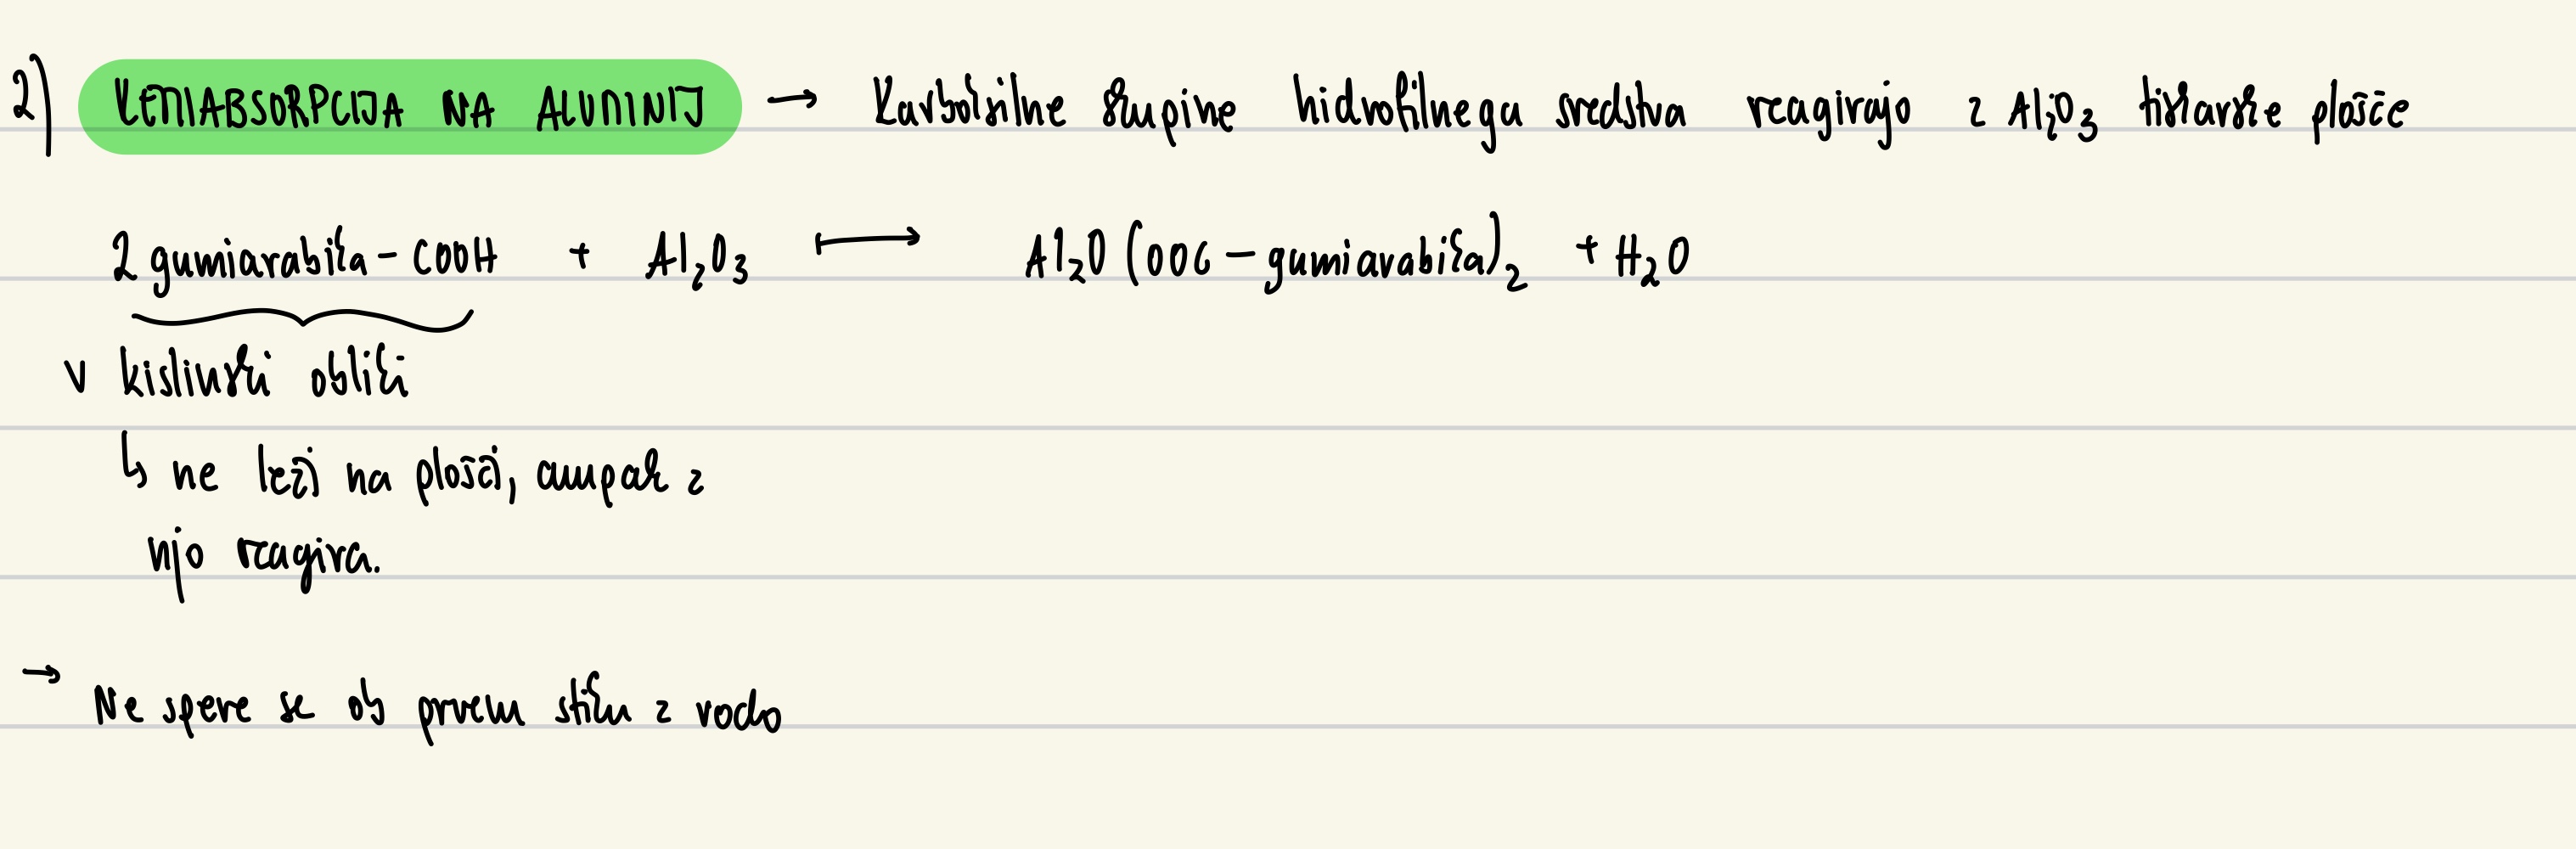 2) KEMIABSORPCIJA NA ALUMINIJ → Karboksilne skupine hidrofilnega sredstva reagirajo z Al₂O₃ tiskarske plošče
2 gumiarabika - COOH + Al₂O₃ ⟼ Al₂O (OOC - gumiarabika)₂ + H₂O
v kislinski obliki
↳ ne leži na plošči, ampak z
njo reagira.
→ Ne spere se ob prvem stiku z vodo